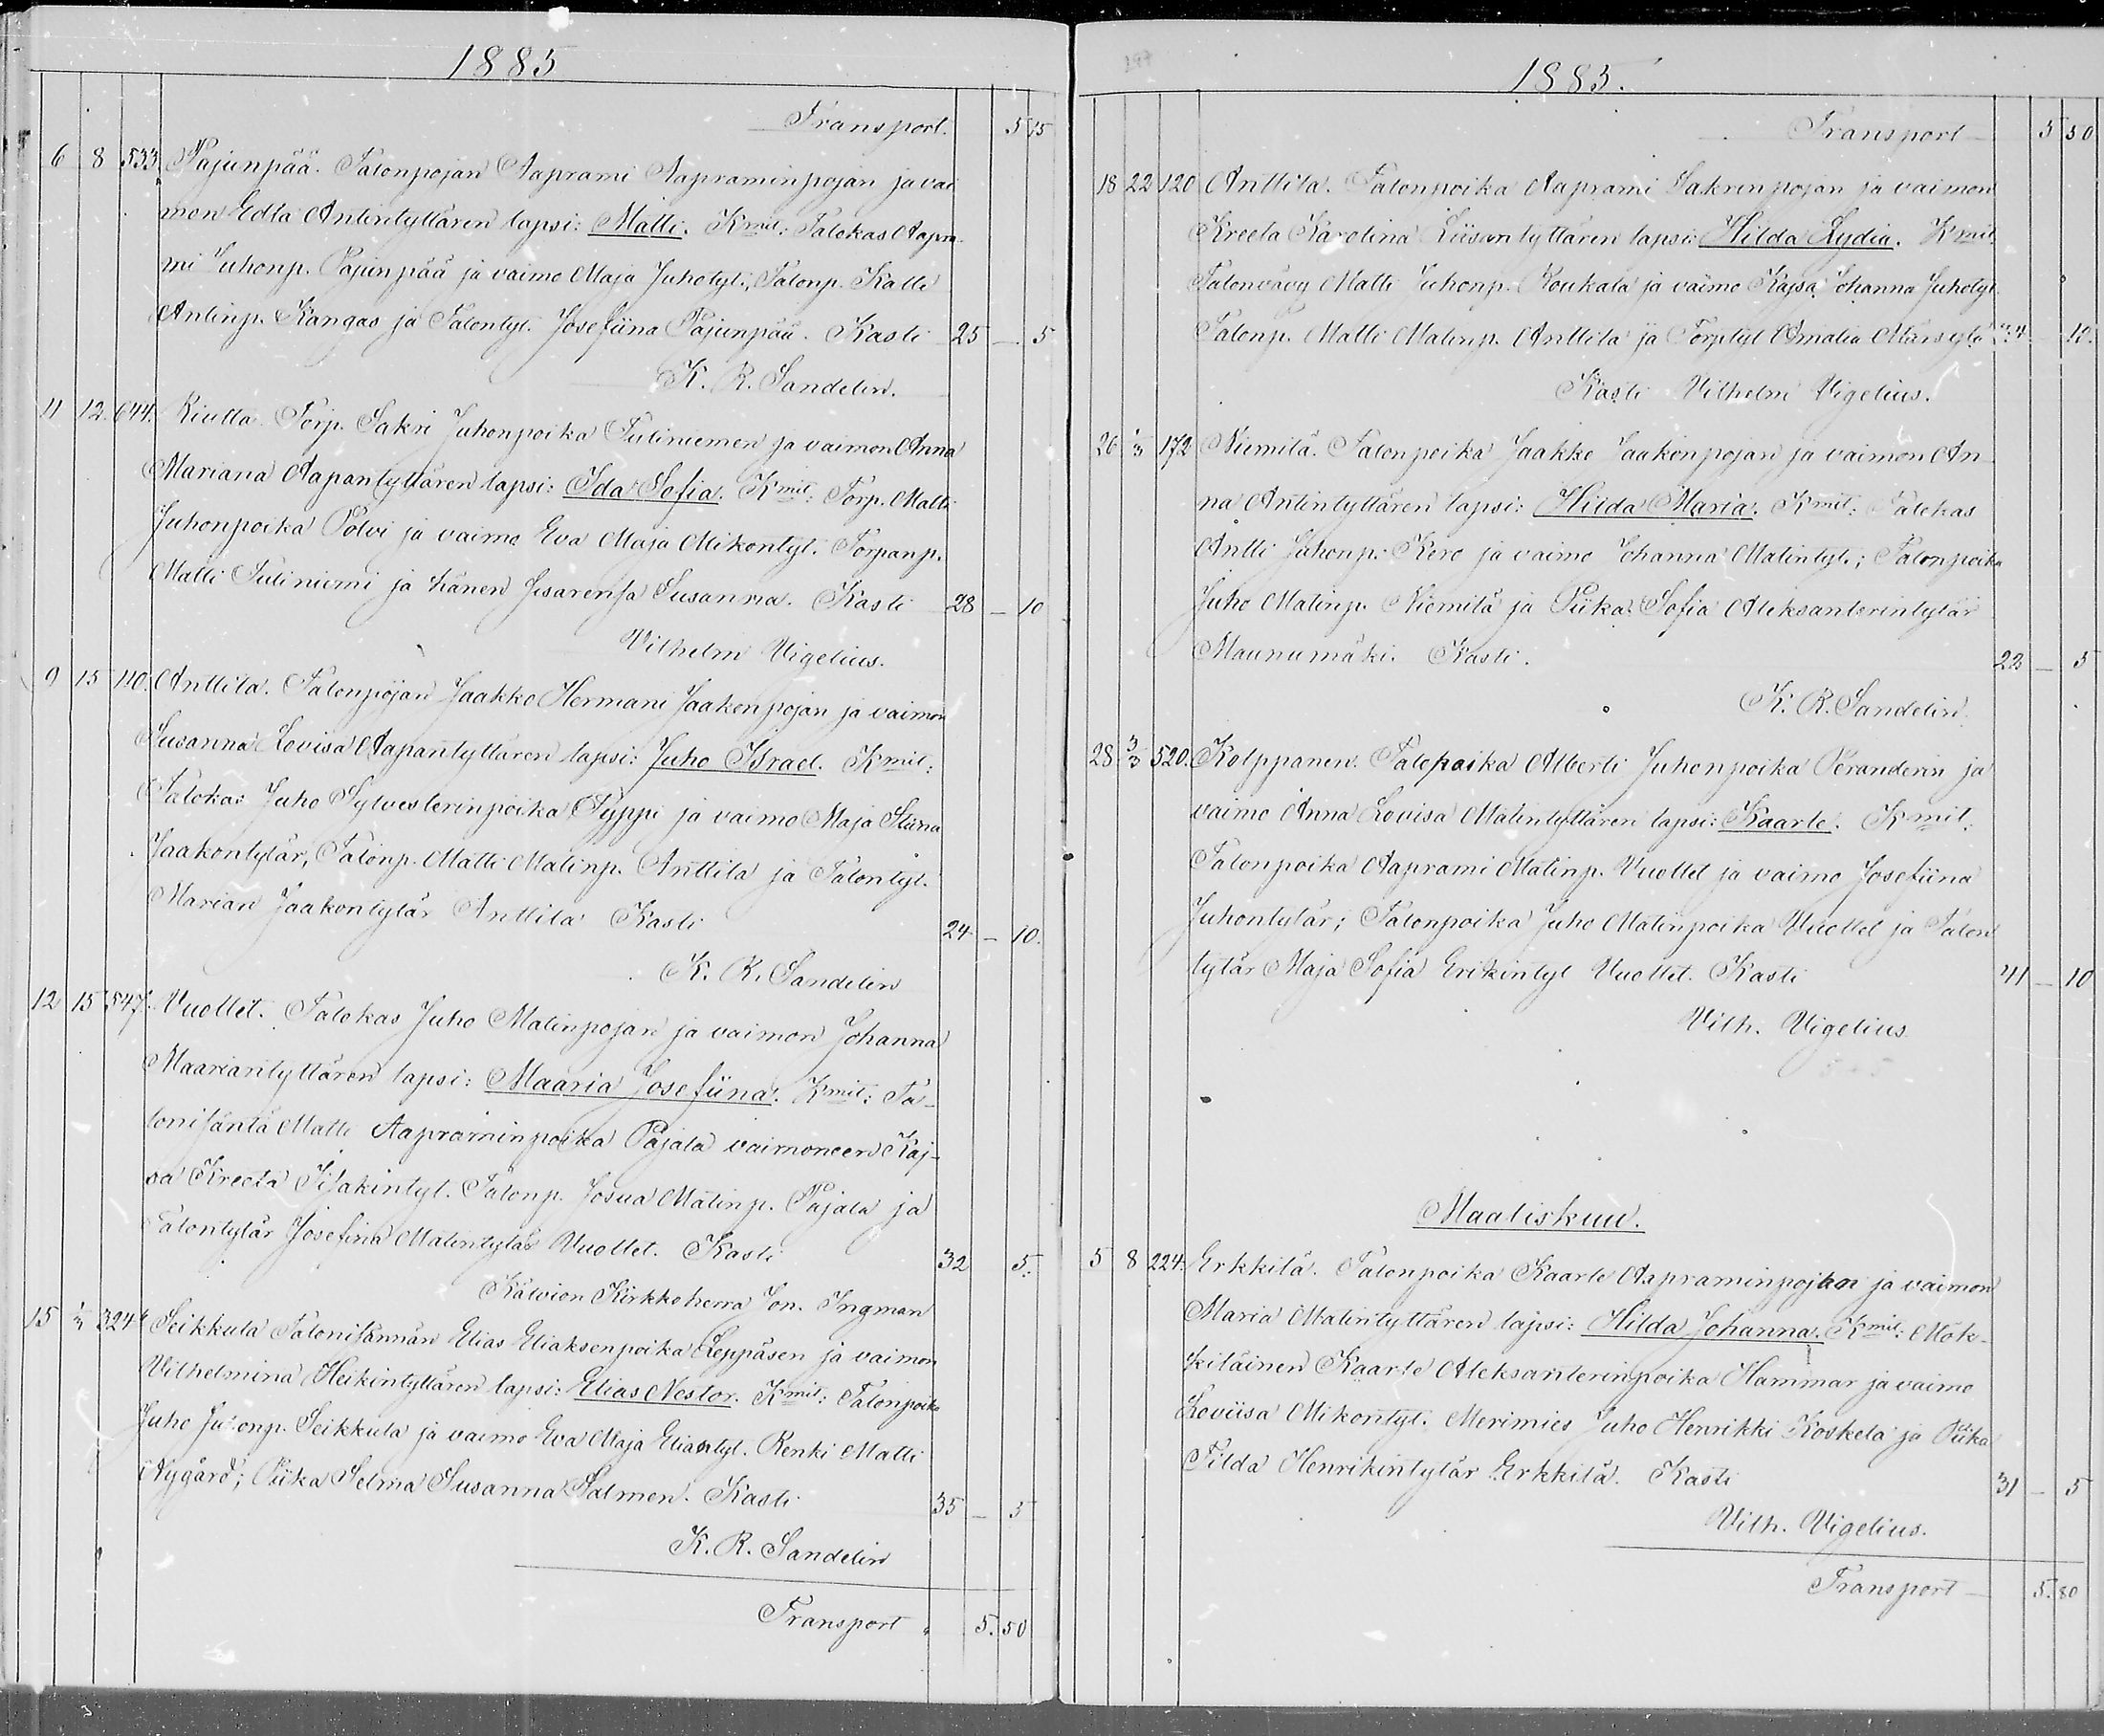 1885
Transport. 5 15
6 8 533. Pajunpää. Talonpojan Aaprami Aapraminpojan ja vai
mon Edla Antintyttären lapsi: Matti. Kmit: Talokas Aapra-
mi Juhonp. Pajunpää ja vaimo Maja Juhotyt.; Talonp. Kalle
Antinp. Kangas ja Talontyt. Josefiina Pajunpää. Kasti 25 — 5
K. R. Sandelin.
11 12. 644. Riutta. Torp. Sakri Juhonpoika Tuliniemen ja vaimon Anna
Mariana Aapantyttären lapsi: Ida Sofia. Kmit: Torp. Matti
Juhonpoika Polvi ja vaimo Eva Maja Mikontyt. Torpanp.
Matti Tuliniemi ja hänen sisarensa Susanna. Kasti 28 — 10
Vilhelm Vigelius.
9 15 110. Anttila. Talonpojan Jaakko Hermani Jaakonpojan ja vaimon
Susanna Lovisa Aapantyttären lapsi: Juho Israel. Kmit:
Talokas Juho Sylvesterinpoika Typpi ja vaimo Maja Stiina
Jaakontytär, Talonp. Matti Matinp. Anttila ja Talontyt.
Marian Jaakontytär Anttila Kasti 24 — 10.
K. R. Sandelin
12 15 547. Vuollet. Talokas Juho Matinpojan ja vaimon Johanna
Maariantyttären lapsi: Maaria Josefiina. Kmit: Ta-
lonisäntä Matti Aapraminpoika Pajala vaimoneen Kaj-
sa Kreeta Iisakintyt. Talonp. Josua Matinp. Pajala ja
Talontytär Josefina Matintytär Vuollet. Kasti 32 5.
Kälviän Kirkkoherra Jon. Ingman
15 1/3 324. Seikkula Talonisännän Elias Eliaksenpoika Leppäsen ja vaimon
Vilhelmina Heikintyttären lapsi: Elias Nestor. Kmit: Talonpoika
Juho Juhonp. Seikkula ja vaimo Eva Maja Eliantyt. Renki Matti
Nygård; Piika Selma Susanna Salmen. Kasti 35 — 5
K. R. Sandelin
Transport 5. 50
1885.
Transport 5 50
18 22 120 Anttila. Talonpoika Aaprami Sakrinpojan ja vaimon
Kreeta Karolina Liisantyttären lapsi: Hilda Lydia. Kmit.
Talonvävy Matti Juhonp. Roukala ja vaimo Kajsa Johanna Juhotyt.
Talonp. Matti Matinp. Anttila ja Torptyt Amalia 34 10.
Kasti Vilhelm Vigelius.
26 1/3 172 Niemilä. Talonpoika Jaakko Jaakonpojan ja vaimon An-
na Antintyttären lapsi: Hilda Maria. Kmit: Talokas
Antti Juhonp. Kero ja vaimo Johanna Matintyt.; Talonpoika
Juho Matinp. Niemilä ja Piika Sofia Aleksanterintytär
Maunumäki. Kasti. 22 — 5
K. R. Sandelin.
28 3/3 520. Kolppanen. Talopoika Alberti Juhonpoika Peranderin ja
vaimo Anna Lovisa Matintyttären lapsi: Kaarle. Kmit:
Talonpoika Aaprami Matinp. Vuollet ja vaimo Josefiina
Juhontytär; Talonpoika Juho Matinpoika Vuollet ja Talon
tytär Maja Sofia Erikintyt Vuollet. Kasti 41 — 10
Vilh. Vigelius
Maaliskuu.
5 8 224. Erkkilä. Talonpoika Kaarle Aapraminpojan ja vaimon
Maria Matintyttären lapsi: Hilda Johanna. Kmit: Mök-
kiläinen Kaarle Aleksanterinpoika Hammar ja vaimo
Loviisa Mikontyt. Merimies Juho Henrikki Koskela ja Piika
Tilda Henrikintytär Erkkilä. Kasti 31 — 5
Vilh. Vigelius.
Transport 5. 80